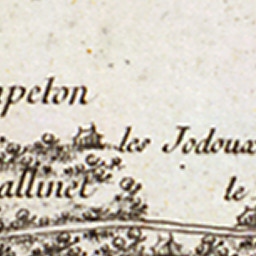 pelon
les Jodoux
allinet
le